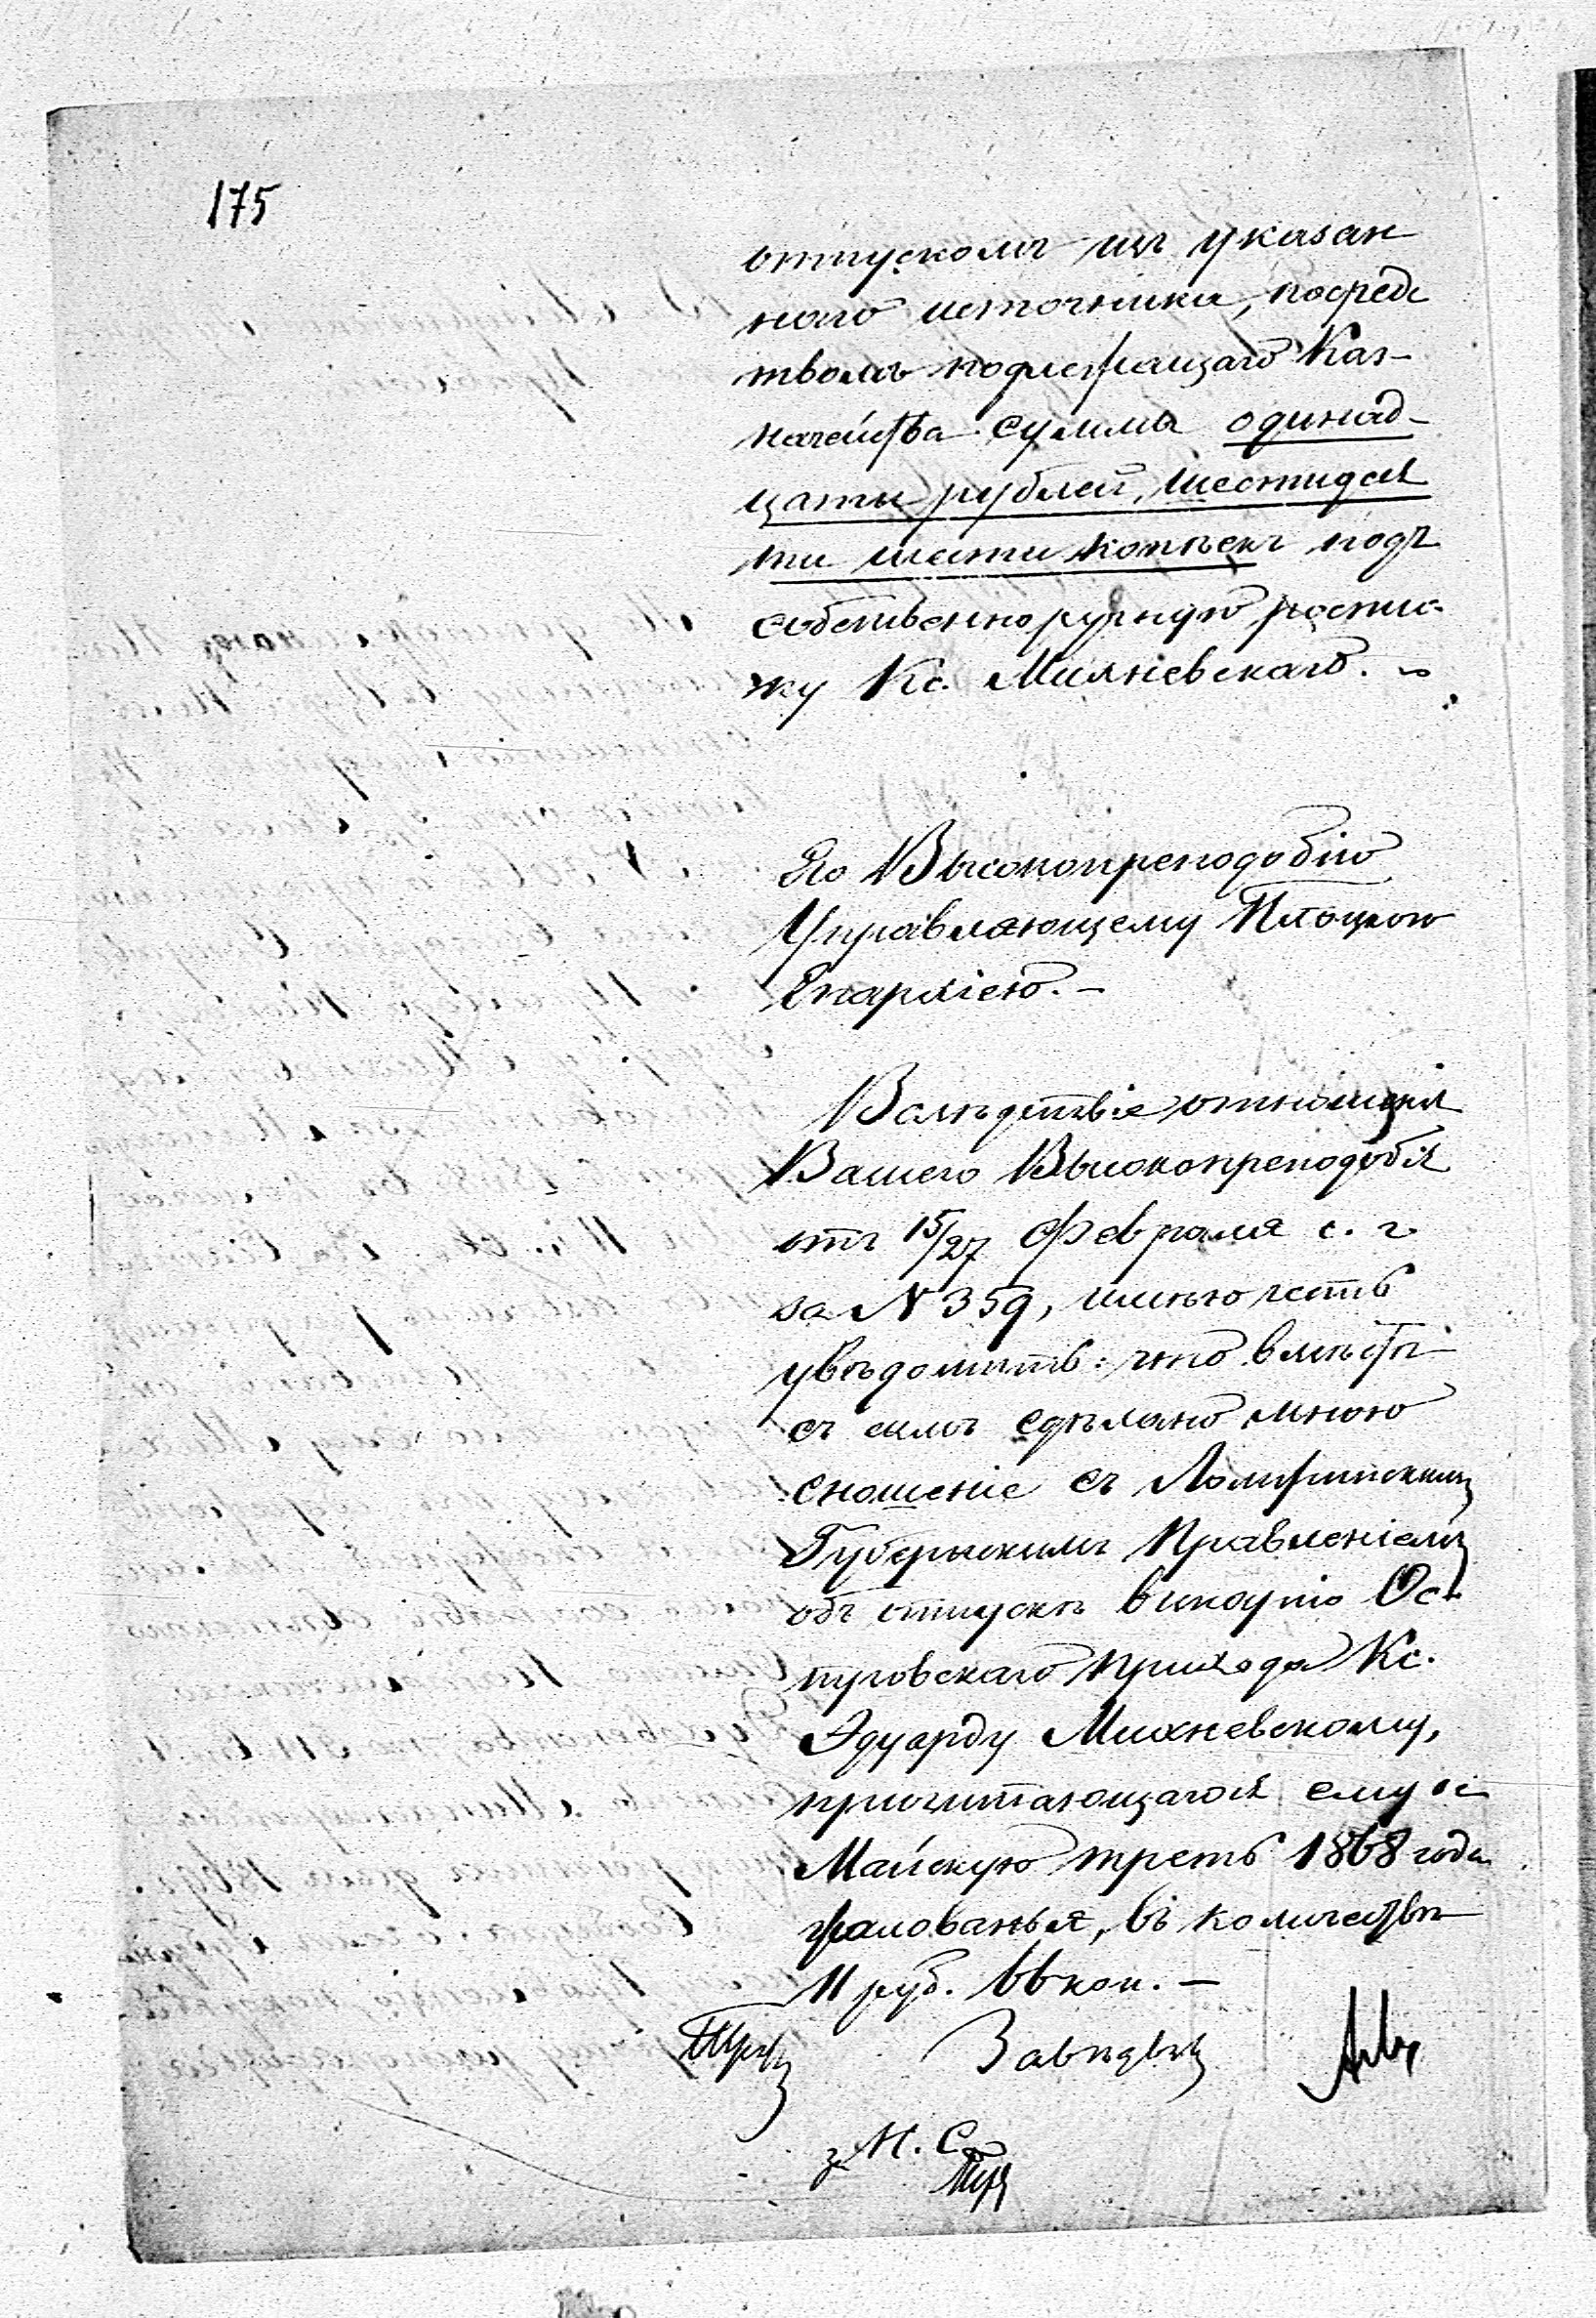 175
отпускомъ изъ указан
наго источника, посредс
твомъ подлежащаго Каз-
начейства суммы одинад-
цати рублей, шестидеся
ти шести копѣекъ подъ
собственноручную роспис-
ку Кс. Михневскаго. –
Его Высокопреподобію
Управляющему Плоцкою
Епархіею. –
Вслѣдствіе отношенія
Вашего Высокопреподобія
отъ 15/27 Февраля с. г.
за N 359, имѣю честь
увѣдомить: что вмѣстѣ
съ симъ сдѣлано мною
сношеніе съ Ломжинскимъ
Губернскимъ Правленіемъ
объ отпускѣ викарію Ос-
туровскаго прихода Кс.
Эдуарду Михневскому,
причитающагося ему за
Майскую треть 1868 года
жалованья, въ количествѣ
11 руб. 66 коп. –
Завѣдыв
з Н. С.